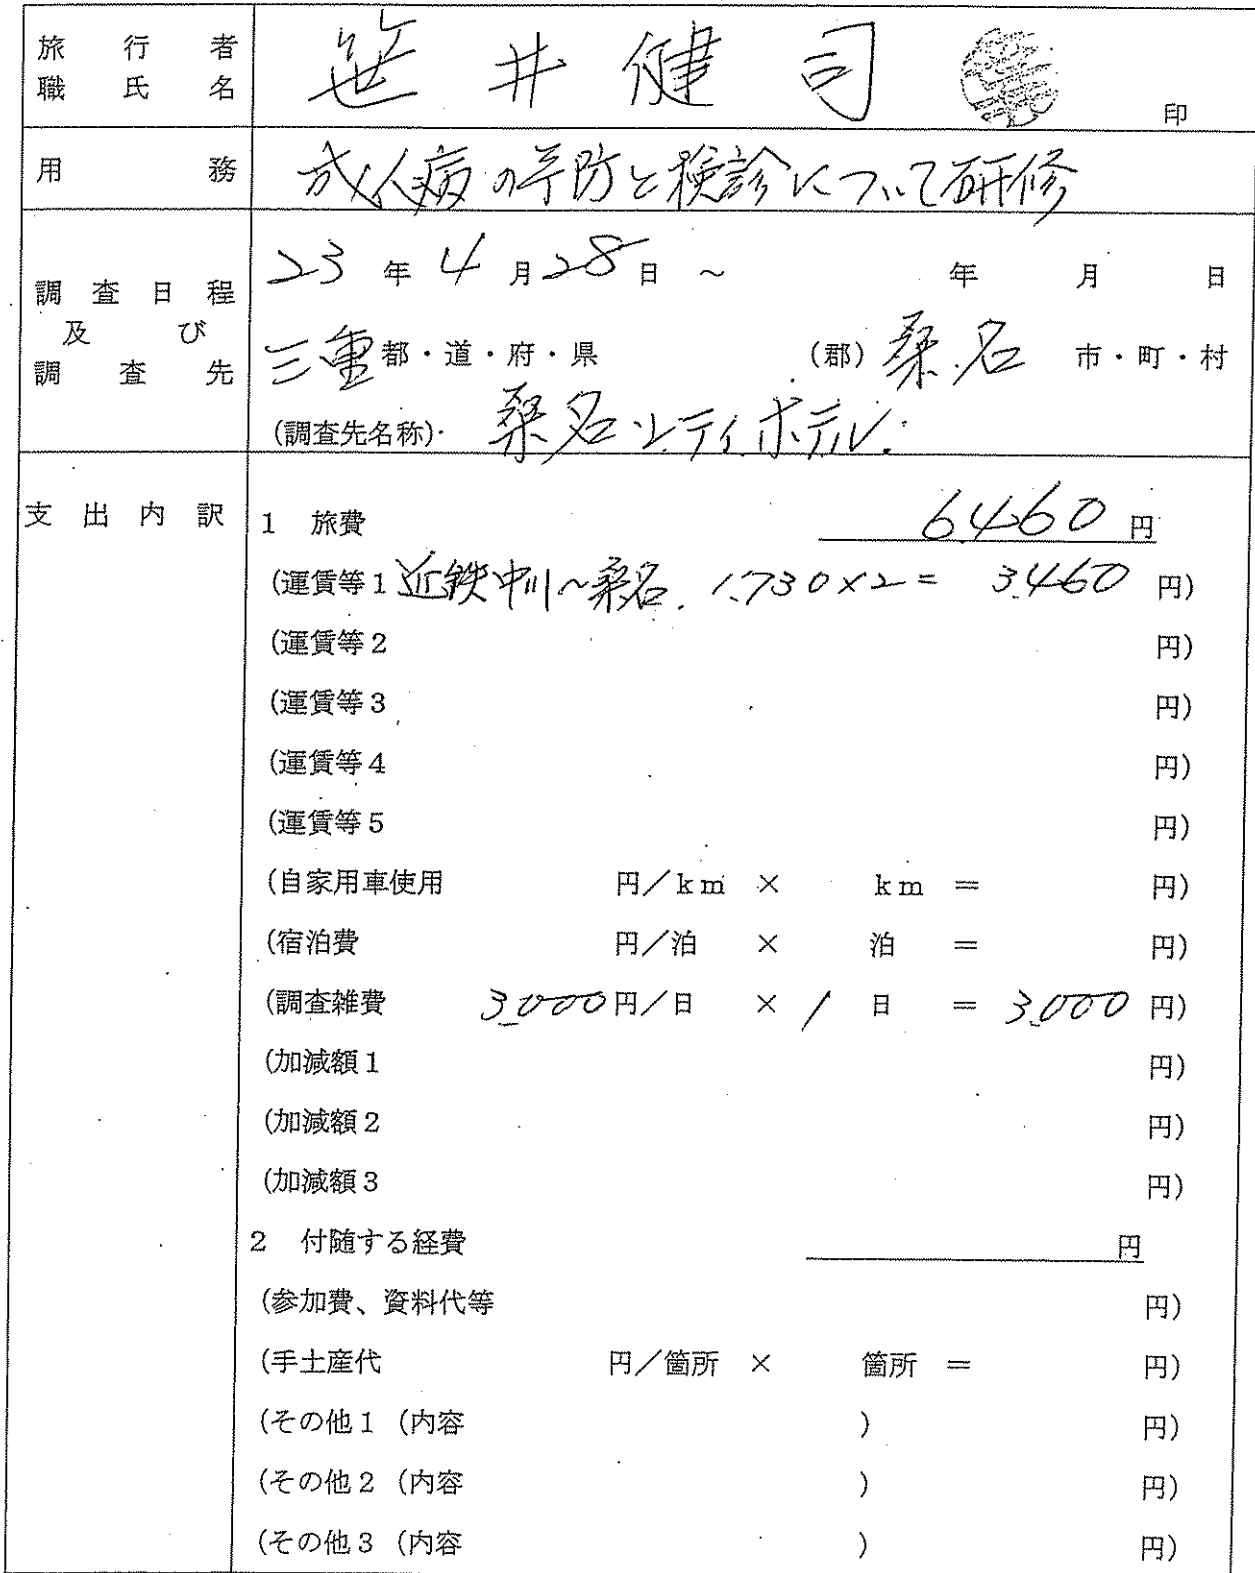 旅行者 笹井健司 印
職氏名
用務 成人病の予防と検診について研修
調査日程 23年4月28日 ～ 年 月 日
及び
調査先 三重都・道・府・県 (郡) 桑名 市・町・村
(調査先名称) 桑名シティホテル.
支出内訳 1 旅費 6,460円
(運賃等1 近鉄中川～桑名. 1,730×2= 3,460 円)
(運賃等2 円)
(運賃等3 円)
(運賃等4 円)
(運賃等5 円)
(自家用車使用 円／km × km = 円)
(宿泊費 円／泊 × 泊 = 円)
(調査雑費 3,000円／日 × 1 日 = 3,000 円)
(加減額1 円)
(加減額2 円)
(加減額3 円)
2 付随する経費 円
(参加費、資料代等 円)
(手土産代 円／箇所 × 箇所 = 円)
(その他1 (内容 ) 円)
(その他2 (内容 ) 円)
(その他3 (内容 ) 円)